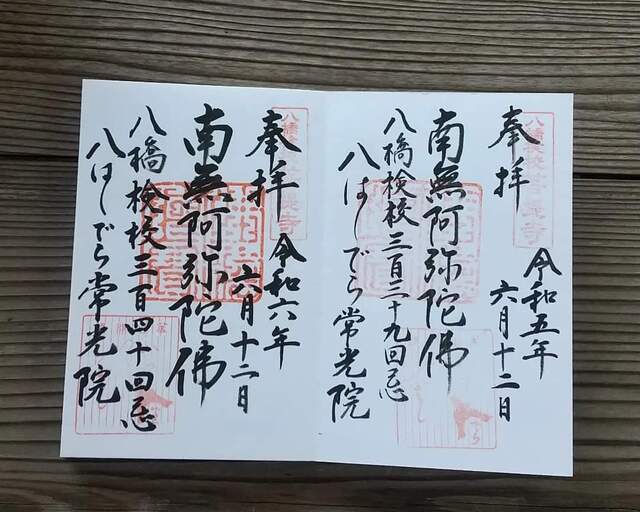 奉拝
令和五年
六月十二日
南無阿弥陀佛
八橋検校三百三十九回忌
八はしでら常光院
奉拝
令和六年
六月十二日
南無阿弥陀佛
八橋検校三百四十回忌
八はしでら常光院